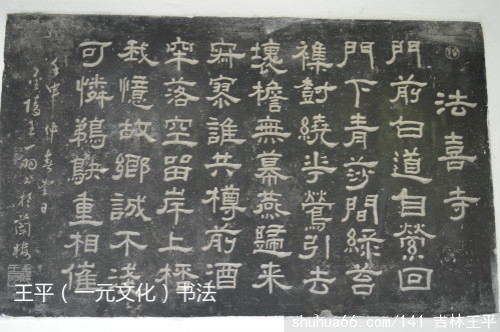 法喜寺
門前白道自縈回
門下青莎間綠苔
襍樹繞花鶯引去
壞檐無幕燕歸来
寂寥誰共樽前酒
牢落空留岸上杯
我憶故鄉誠不淺
可憐鵜鴃重相催
壬申仲春望日
王一羽
王平（一元文化）书法
shuhua66.com/141 吉林王平